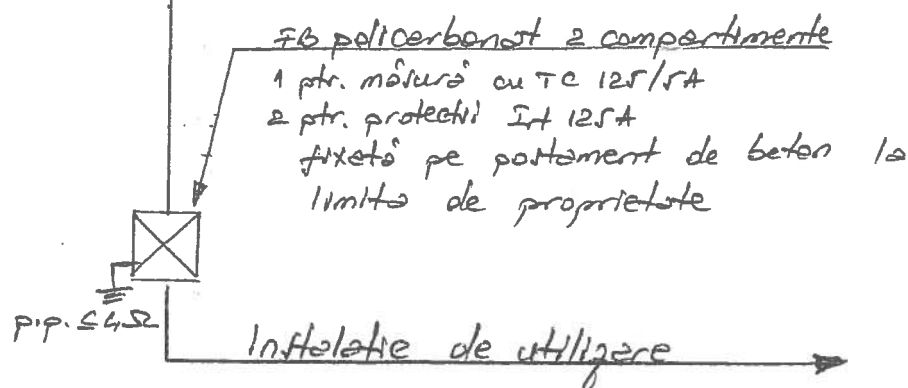 FB policarbonat 2 compartimente
1 ptr. măsură cu TC 125/5A
2 ptr. protecții Irt 125A
fixată pe postament de beton la
limita de proprietate
p.p. ≤ 4Ω
Instalație de utilizare